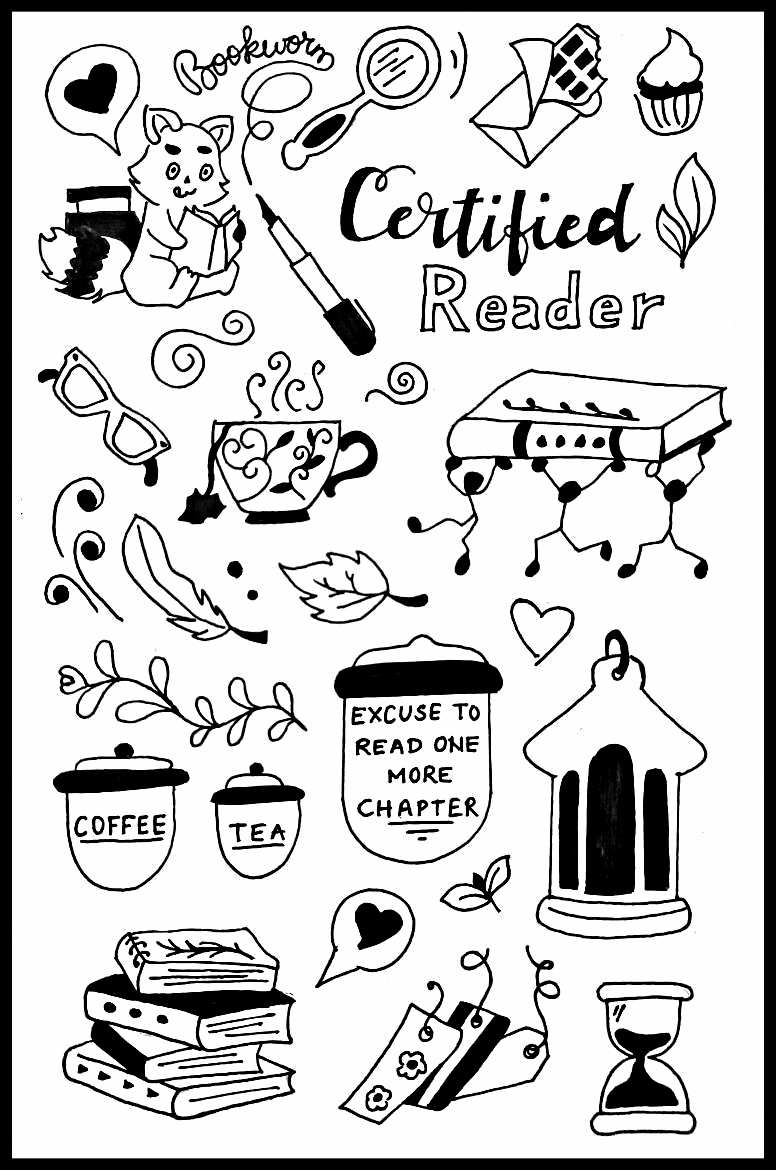 Bookworm
Certified
Reader
EXCUSE TO
READ ONE
MORE
CHAPTER
COFFEE
TEA